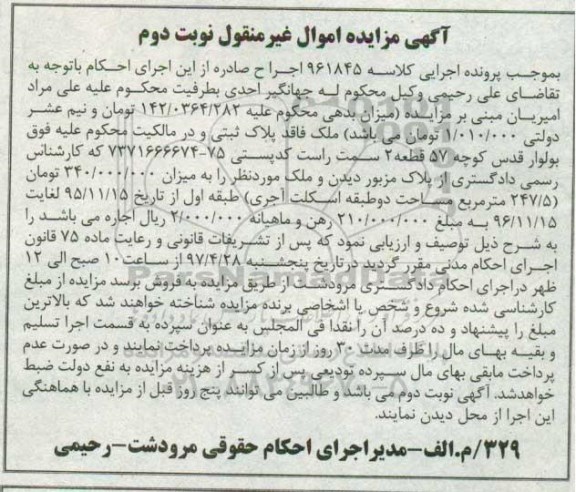 آگهی مزایده اموال غیرمنقول نوبت دوم
بموجب پرونده اجرایی کلاسه ۹۶۱۸۴۵ اجرا ح صادره از این اجرای احکام باتوجه به
تقاضای علی رحیمی وکیل محکوم له جهانگیر احدی بطرفیت محکوم علیه علی مراد
امیریان مبنی بر مزایده (میزان بدهی محکوم علیه ۱۴۲/۰۳۶۴/۲۸۲ تومان و نیم عشر
دولتی ۱/۰۱۰/۰۰۰ تومان می باشد) ملک فاقد پلاک ثبتی و در مالکیت محکوم علیه فوق
بولوار قدس کوچه ۵۷ قطعه۲ سمت راست کدپستی ۷۵-۷۳۷۱۶۶۶۶۷۴ که کارشناس
رسمی دادگستری از پلاک مزبور دیدن و ملک موردنظر را به میزان ۳۴۰/۰۰۰/۰۰۰ تومان
(۲۴۷/۵ مترمربع مساحت دوطبقه اسکلت آجری) طبقه اول از تاریخ ۹۵/۱۱/۱۵ لغایت
۹۶/۱۱/۱۵ به مبلغ ۲۱۰/۰۰۰/۰۰۰ رهن و ماهیانه ۲/۰۰۰/۰۰۰ ریال اجاره می باشد را
به شرح ذیل توصیف و ارزیابی نمود که پس از تشریفات قانونی و رعایت ماده ۷۵ قانون
اجرای احکام مدنی مقرر گردید در تاریخ پنجشنبه ۹۷/۴/۲۸ از ساعت ۱۰ صبح الی ۱۲
ظهر دراجرای احکام دادگستری مرودشت از طریق مزایده به فروش برسد مزایده از مبلغ
کارشناسی شده شروع و شخص یا اشخاصی برنده مزایده شناخته خواهند شد که بالاترین
مبلغ را پیشنهاد و ده درصد آن را نقدا فی المجلس به عنوان سپرده به قسمت اجرا تسلیم
و بقیه بهای مال را ظرف مدت ۳۰ روز از زمان مزایده پرداخت نمایند و در صورت عدم
پرداخت مابقی بهای مال سپرده تودیعی پس از کسر از هزینه مزایده به نفع دولت ضبط
خواهدشد. آگهی نوبت دوم می باشد و طالبین می توانند پنج روز قبل از مزایده با هماهنگی
این اجرا از محل دیدن نمایند.
۳۲۹/م.الف-مدیراجرای احکام حقوقی مرودشت-رحیمی